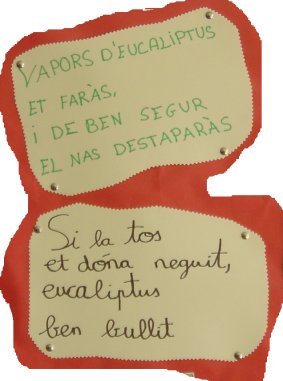 VAPORS D'EUCALIPTUS
ET FARÀS,
i DE BEN SEGUR
EL NAS DESTAPARÀS
Si la tos
et dóna neguit,
eucaliptus
ben bullit